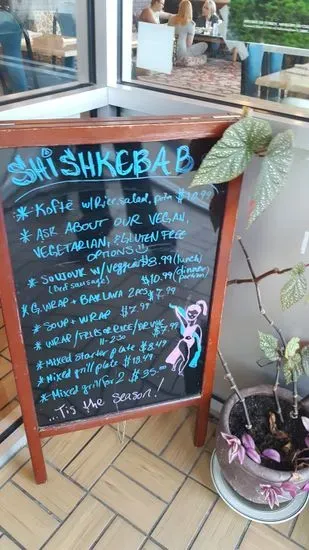 SHISHKEBAB
* Kofte w/Rice, salad, pita $10.99
* ASK ABOUT OUR VEGAN,
VEGETARIAN, & GLUTEN FREE
OPTIONS
* SOUJOUK w/veggies $8.99 (lunch)
(beef sausage) $10.99 (dinner portion)
* G.WRAP + BAKLAVA 2pcs $7.99
* SOUP + WRAP $7.99
* WRAP/FRIES OR RICE/DRINK $7.99
11-2:30
* Mixed starter plate $8.49
* Mixed grill plate $18.49
* Mixed grill for 2 $35.00
...'Tis the season!